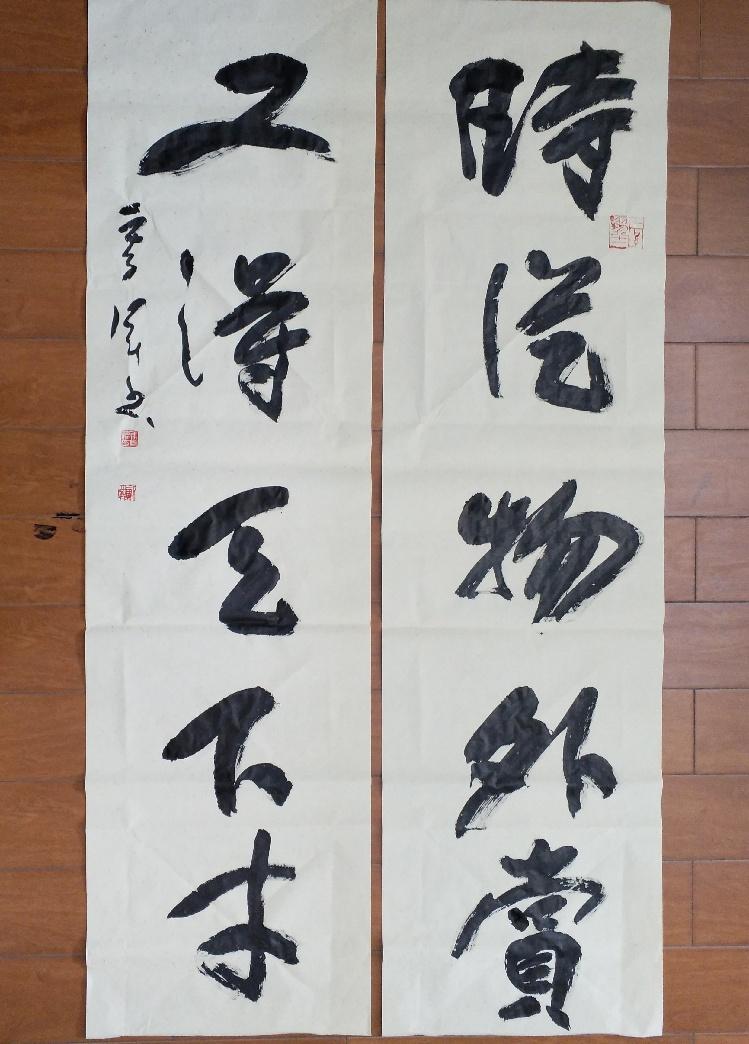 時從物外賞
又得天下才